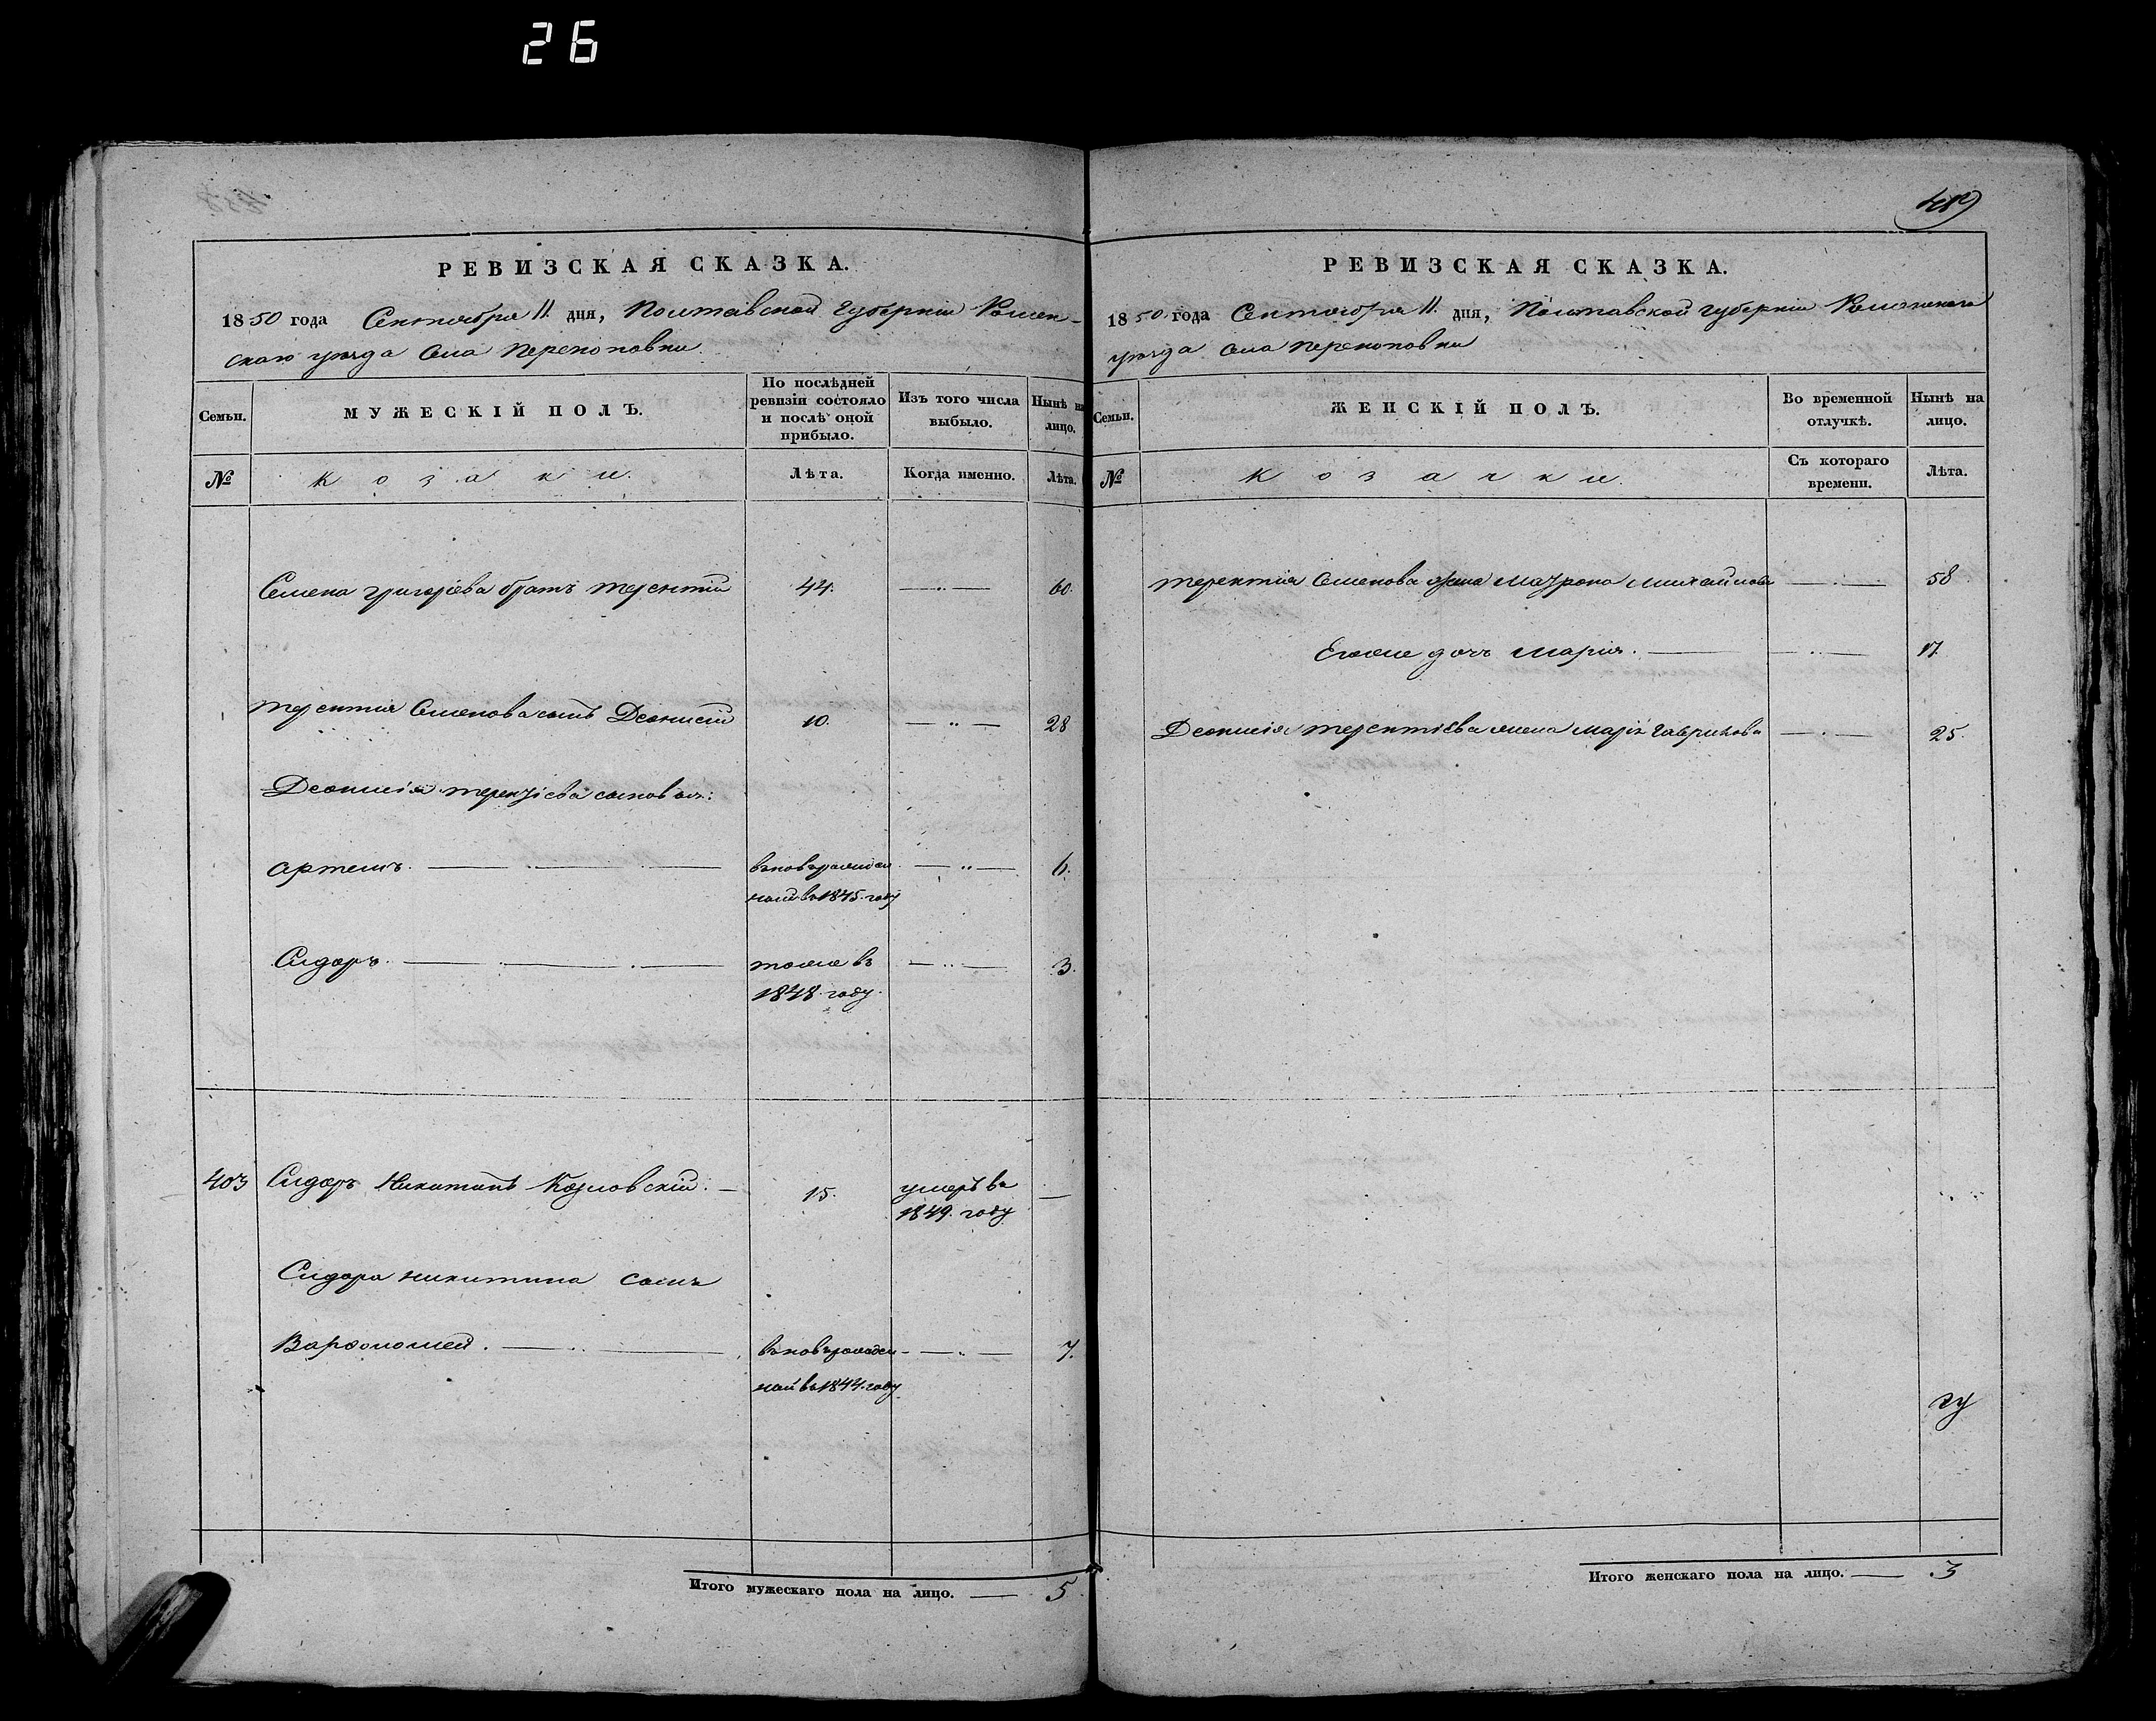 26
РЕВИЗСКАЯ СКАЗКА.
1850 года Сентября 11 дня, Полтавской Губерніи Ромен-
скаго уезда Села Перекоповки
Семьи.
МУЖЕСКІЙ ПОЛЪ.
По послѣдней ревизіи состояло и послѣ оной прибыло.
Изъ того числа выбыло.
Нынѣ на лицо.
№
Козаки.
Лѣта.
Когда именно.
Лѣта.
Семена Григорiева братъ Терентій 44. 60.
Терентія Семенова сынъ Деонисій 10. 28
Деонисія Терентiева сыновья:
Артемъ. вновьрожден
ный въ 1845. году 6.
Сидоръ. тоже въ
1848. году. 3.
403 Сидоръ Никитинъ Козловскій. 15. умеръ въ
1849. году
Сидора Никитина сынъ
Варфоломей. вновьрожден
ный въ 1844. году 7.
Итого мужескаго пола на лицо. 5
РЕВИЗСКАЯ СКАЗКА.
1850. года Сентября 11. дня, Полтавской Губерніи Роменскаго
уезда Села Перекоповки
Семьи.
ЖЕНСКІЙ ПОЛЪ.
Во временной отлучкѣ.
Нынѣ на лицо.
№
Козачки.
Съ котораго времени.
Лѣта.
Терентія Семенова жена Мазрона Михайлова 58
Егоже дочь Марія. 17.
Деонисія Терентіева жена Марія Гаврилова 25.
Итого женскаго пола на лицо. 3